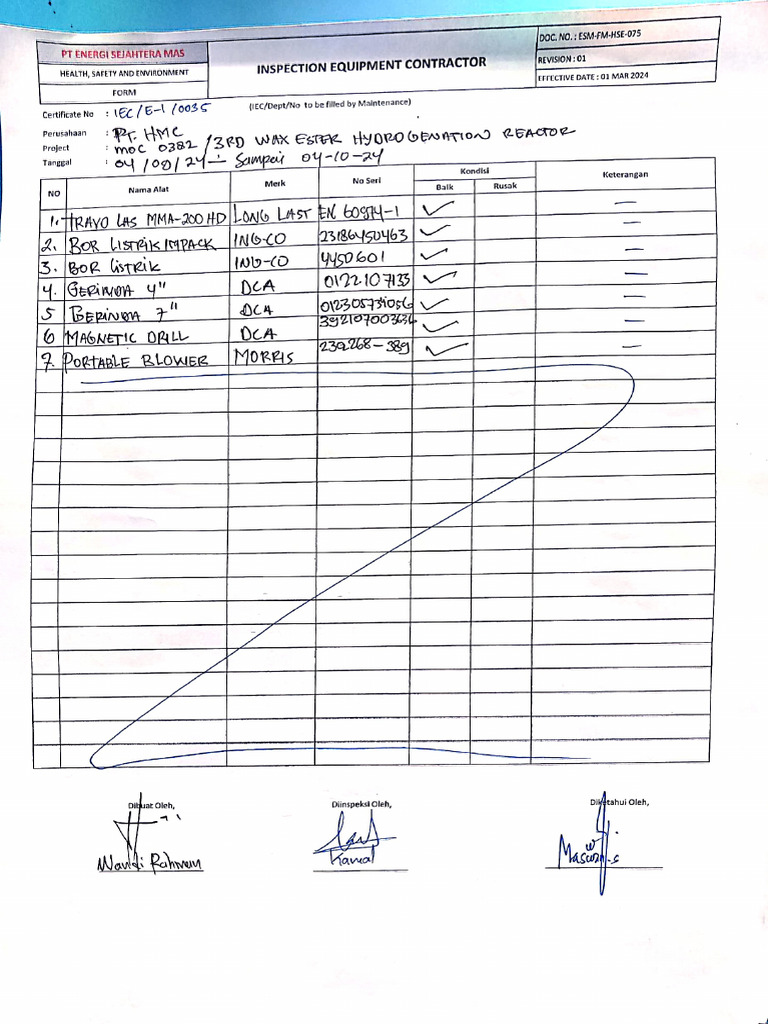 PT ENERGI SEJAHTERA MAS
HEALTH, SAFETY AND ENVIRONMENT
FORM
INSPECTION EQUIPMENT CONTRACTOR
DOC. NO. : ESM-FM-HSE-075
REVISION : 01
EFFECTIVE DATE : 01 MAR 2024
Certificate No : IEC/E-1/0035 (IEC/Dept/No to be filled by Maintenance)
Perusahaan : PT. HMC
Project : MOC 0382 / 3RD WAX ESTER HYDROGENATION REACTOR
Tanggal : 04/09/24 - Sampai 04-10-24
NO Nama Alat Merk No Seri Kondisi Keterangan
Baik Rusak
1. TRAVO LAS MMA-200 HD LONG LAST EN 60974-1 ✓ —
2. BOR LISTRIK IMPACK ING-CO 23186450463 ✓ —
3. BOR LISTRIK ING-CO 4450601 ✓ —
4. GERINDA 4" DCA 0122.107133 ✓ —
5 GERINDA 7" DCA ✓ —
6 MAGNETIC DRILL DCA ✓ —
7. PORTABLE BLOWER MORRIS 239268-389 ✓ —
Dibuat Oleh, Diinspeksi Oleh, Diketahui Oleh,
Wandi Rahman Kamal